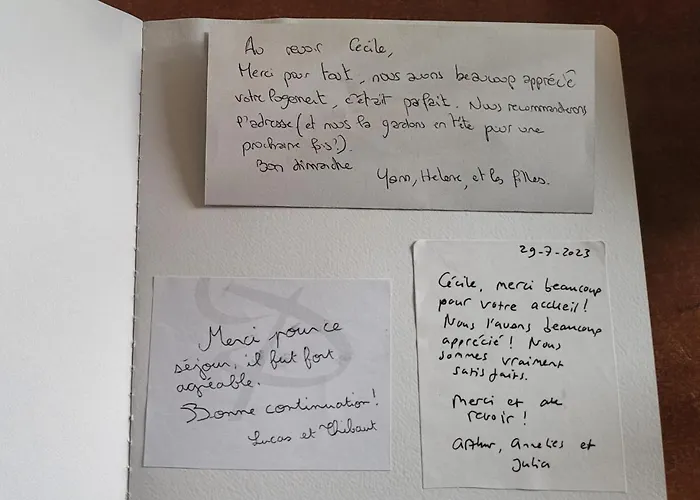 Au revoir Cécile,
Merci pour tout, nous avons beaucoup apprécié
votre logement, c'était parfait. Nous recommanderons
l'adresse (et nous la gardons en tête pour une
prochaine fois?).
Bon dimanche
Yann, Helene, et les filles.
29-7-2023
Cécile, merci beaucoup
pour votre accueil!
Nous l'avons beaucoup
apprécié! Nous
sommes vraiment
satisfaits.
Merci et au
revoir!
Arthur, Annelies et
Julia
Merci pour ce
séjour, il fut fort
agréable.
Bonne continuation!
Lucas et Thibaut